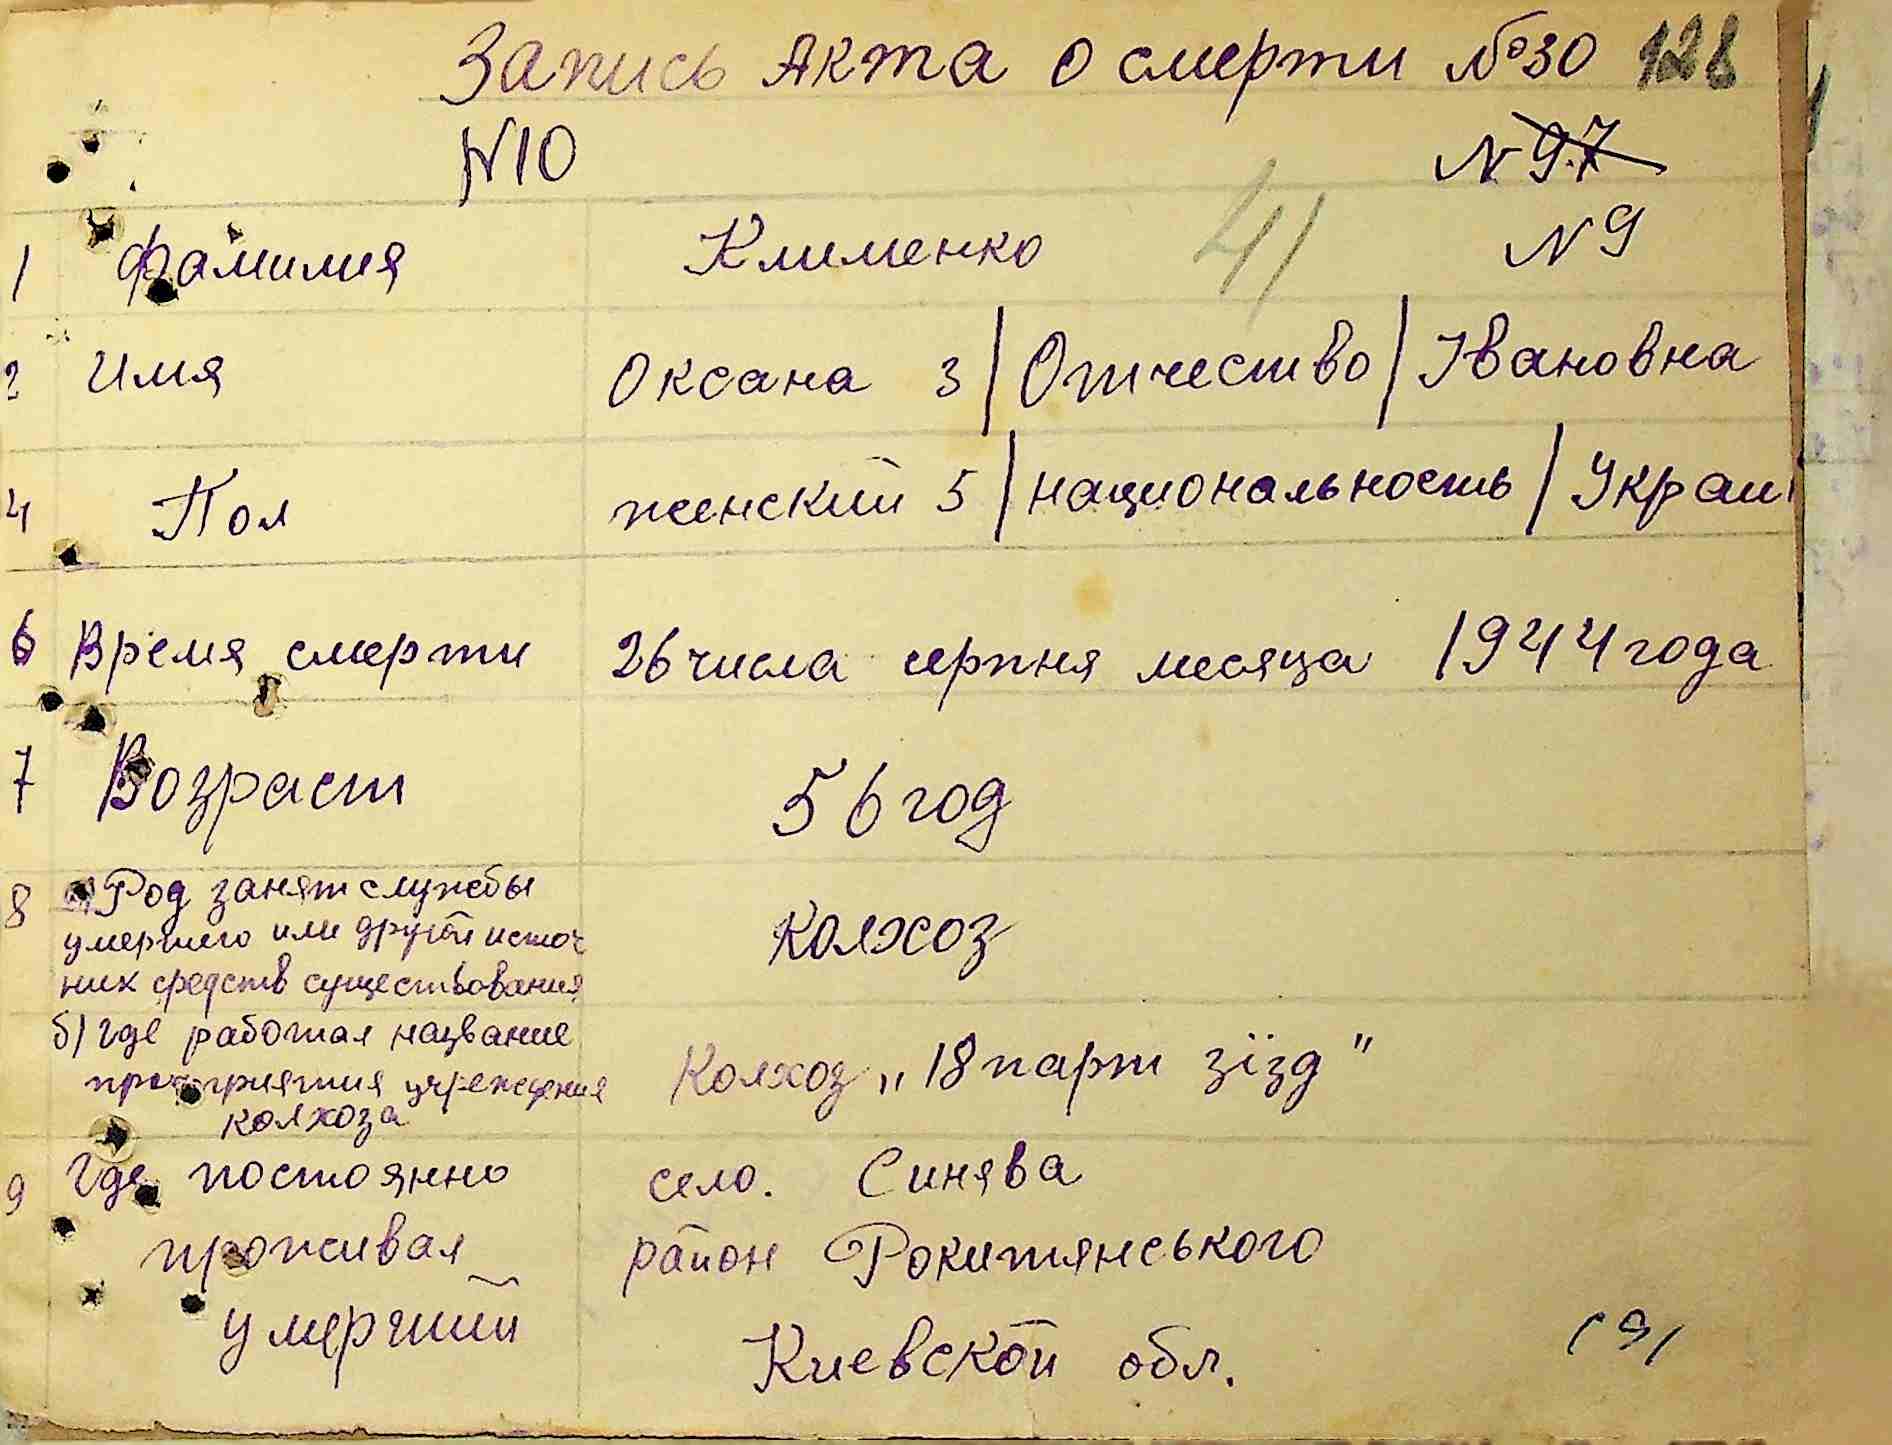 Запись Акта о смерти №30 128
N10 N 97
1 Фамилия Клименко 41 N9
2 Имя Оксана 3 | Отчество | Івановна
4 Пол женский 5 | национальность | Украи
6 Время смерти 26 числа серпня месяца 1944 года
7 Возраст 56 год
8 а) Род занят службы
умершего или другой источ
ник средств существования
колхоз
б) где работал название
предприятия учреждения
колхоза
Колхоз „18 парт зїзд"
9 где постоянно село. Синява
проживал район Рокитянського
умерший Киевской обл. (9)